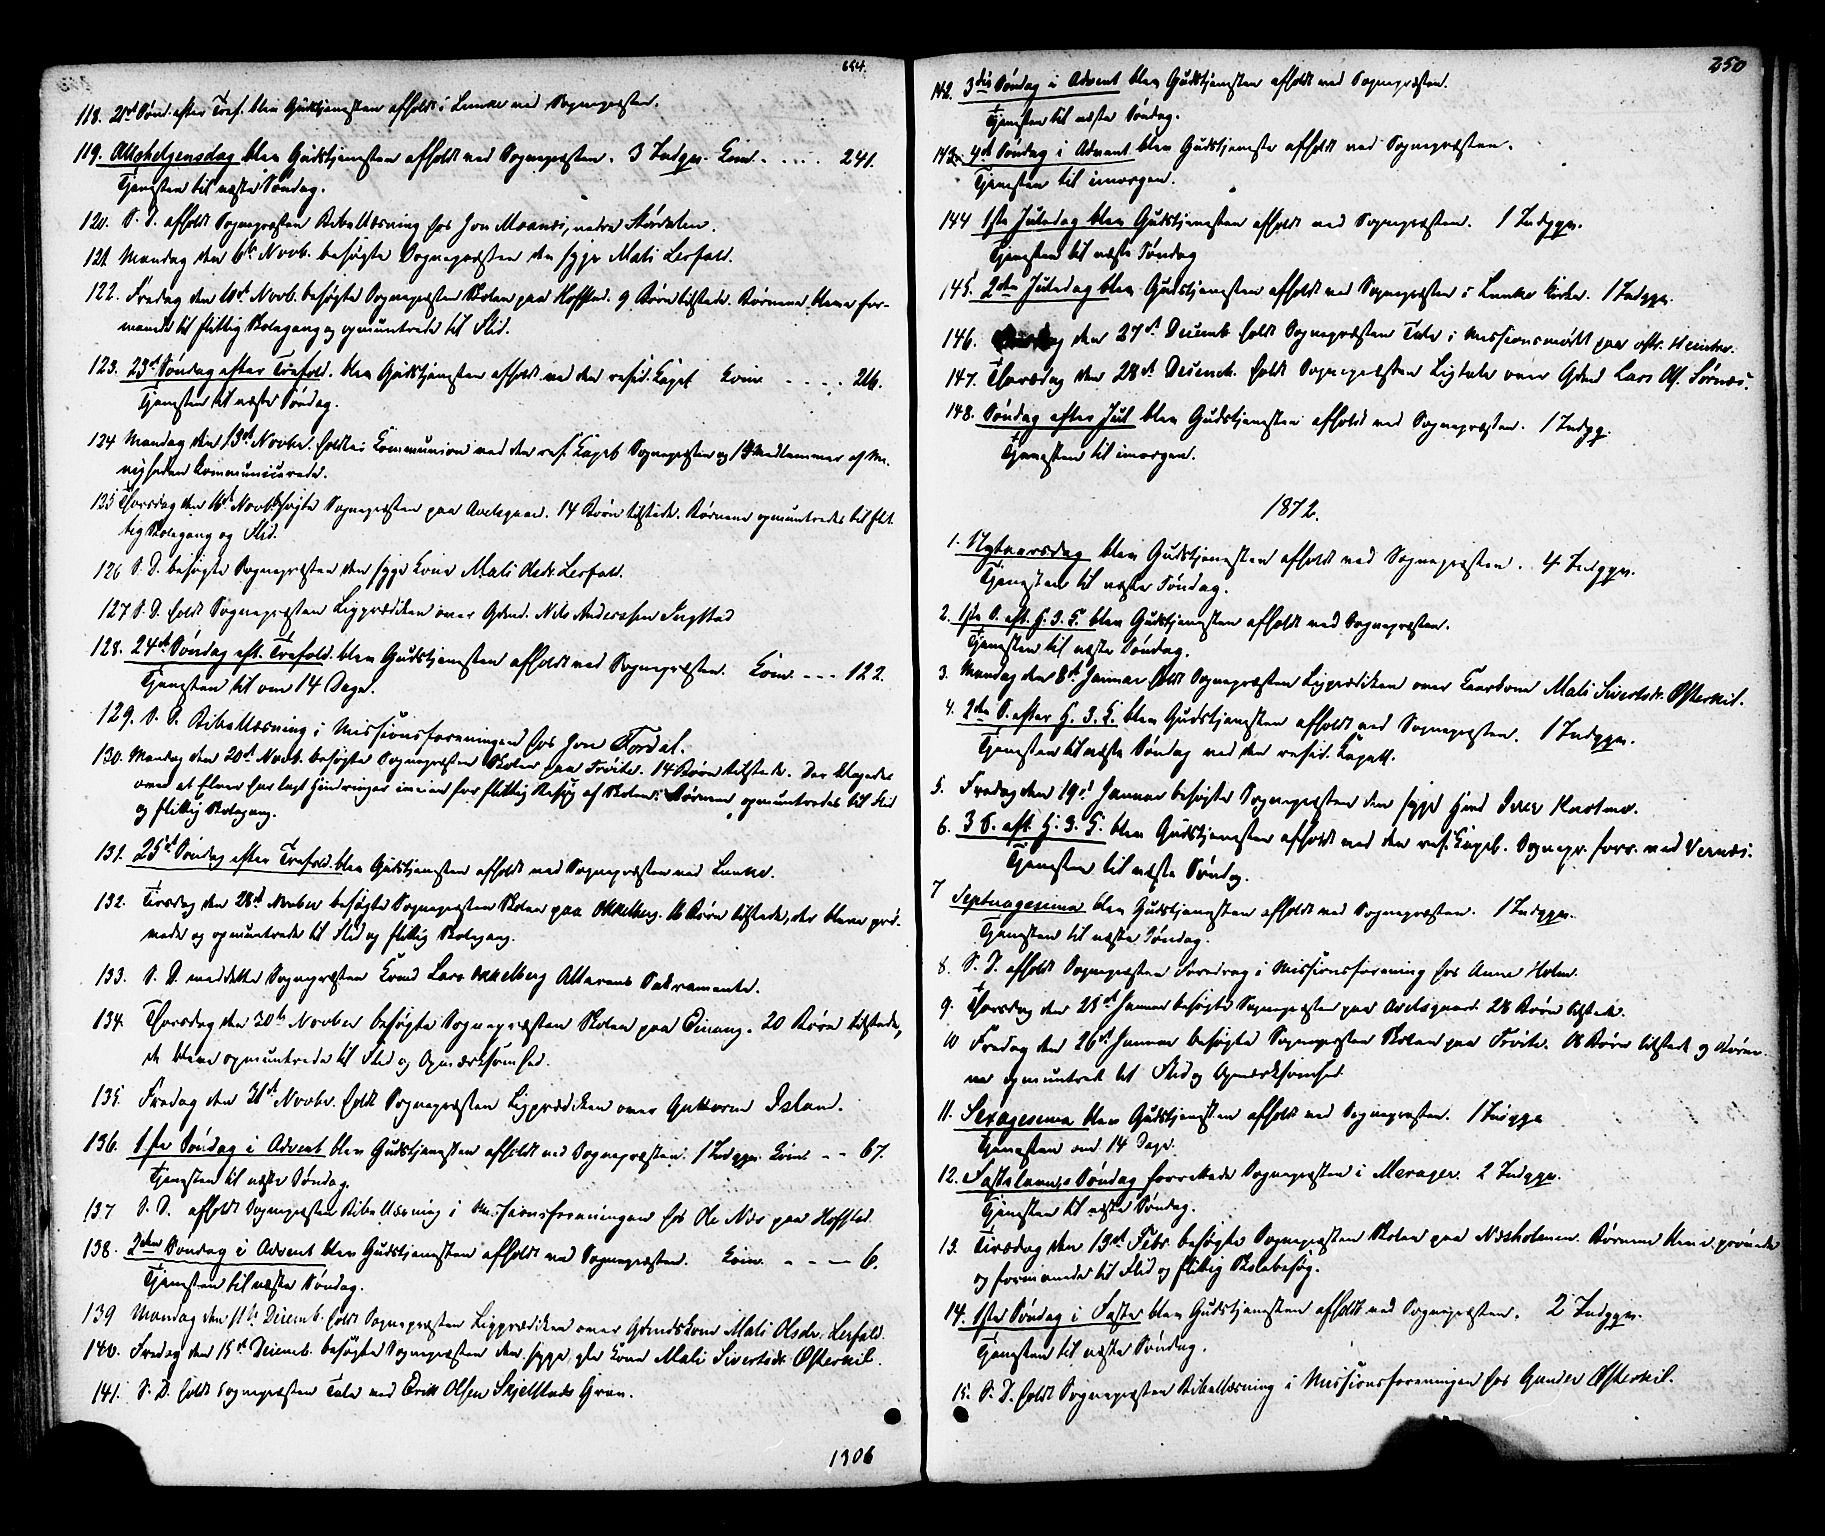 654.
118. 21de Sønd. efter Tref. blev Gudstjenesten afholdt i Lånke ved Sognepræsten.
119. Allehelgensdag blev Gudstjenesten afholdt ved Sognepræsten. 3 Indgn. Kom. - . . . . 241.
Tjenesten til næste Søndag.
120. S. D. afholdt Sognepræsten Bibellæsning hos Jon Moanæs, nedre Stördalen.
121. Mandag den 6te Novb. besøgte Sognepræsten den syge Mali Lerfald.
122. Fredag den 10de Novb. besøgte Sognepræsten Skolen paa Hofstad. 9 Børn tilstede. Børnene bleve for-
manede til flittig Skolegang og opmuntrede til Flid.
123. 23de Søndag efter Trefold. blev Gudstjenesten afholdt ved den resid. Capel. Kom. - - - - 216.
Tjenesten til næste Søndag.
124 Mandag den 13de Novbr. holdtes Communion ved den res. Capel. Sognepræsten og 19 Medlemmer af Me-
nigheden kommunicerede.
135 Thorsdag den 16de Novb. besøgte Sognepræsten paa Avelsgaard. 14 Børn tilstede. Børnene opmuntredes til flit-
tig Skolegang og Flid.
126 S. D. besøgte Sognepræsten den syge Kone Mali Olsdt. Lerfald.
127 S. D. holdt Sognepræsten Ligprædiken over Gdmd. Nils Anderssen
128. 24de Søndag eft. Trefold. blev Gudstjenesten afholdt ved Sognepræsten. Kom. - - - 122.
Tjenesten til om 14 Dage.
129. S. D. Bibellæsning i Missionsforeningen hos Jon Fordal.
130. Mandag den 20de Novb. besøgte Sognepræsten Skolen paa Frøite. 14 Børn tilstede. Der klagedes
over at Elven har lagt Hindringer iveien for flittig Besøg af Skolen. Børnene opmuntredes til Flid
og flittig Skolegang.
131. 25de Søndag efter Trefold. blev Gudstjenesten afholdt ved Sognepræsten ved Lånke.
132. Tirsdag den 28de Novber besøgte Sognepræsten Skolen paa Okkelberg. 16 Børn tilstede, der bleve prø-
vede og opmuntrede til Flid og flittig Skolegang.
133. S. D. meddelte Sognepræsten Lars Okkelberg Alterens Sakramente.
134. Thorsdag den 30te Novber besøgte Sognepræsten Skolen paa Einang. 20 Børn tilstede,
de bleve opmuntrede til Flid og Opmærksomhed.
135. Fredag den 31de Novbr. holdt Sognepræsten Ligprædiken over Guttorm Island.
136. 1ste Søndag i Advent blev Gudstjenesten afholdt ved Sognepræsten. 1 Indgn. Kom. - - 67.
Tjenesten til næste Søndag.
137 S. D. afholdt Sognepræsten Bibellæsning i Missionsforeningen hos Ole Næs paa Hofstad.
138. 2den Søndag i Advent blev Gudstjenesten afholdt ved Sognepræsten. Kom. - - - 6.
Tjenesten til næste Søndag.
139 Mandag den 11te Decemb. holdt Sognepræsten Ligprædiken over Gdmdskone Mali Olsdr. Lerfald.
140. Fredag den 15de Decemb. besøgte Sognepræsten den syge Kone Mali Sivertsdt. Østerkil.
141. S. D. holdt Sognepræsten Tale ved Erik Olsen Skjelstads Grav.
1306
250
142. 3die Søndag i Advent blev Gudstjenesten afholdt ved Sognepræsten.
Tjenesten til næste Søndag.
143. 4de Søndag i Advent blev Gudstjeneste afholdt ved Sognepræsten.
Tjenesten til imorgen.
144 1ste Juledag blev Gudstjenesten afholdt ved Sognepræsten. 1 Indgn.
Tjenesten til næste Søndag
145. 2den Juledag blev Gudstjenesten afholdt ved Sognepræsten i Lånke Kirke. 1 Indgn.
146. den 27de Decemb. holdt Sognepræsten Tale i Missionsmødet paa
147. Thorsdag den 28de Decemb. holdt Sognepræsten Ligtale over Gdmd Lars Ol. Sørnæs.
148. Søndag efter Jul blev Gudstjenesten afholdt ved Sognepræsten. 1 Indg.
Tjenesten til imorgen.
1872.
1. Nytaarsdag blev Gudstjenesten afholdt ved Sognepræsten. 4 Indgn.
Tjenesten til næste Søndag.
2. 1ste S. eft. H. 3. K. blev Gudstjenesten afholdt ved Sognepræsten.
Tjenesten til næste Søndag.
3. Mandag den 8de Januar holdt Sognepræsten Ligprædiken over Kaarkone Mali Sivertsdt. Østerkil.
4. 2den S. efter H. 3. K. blev Gudstjenesten afholdt ved Sognepræsten. 1 Indgn.
Tjenesten til næste Søndag ved den resid. Capell.
5. Fredag den 19de Januar besøgte Sognepræsten den syge
6. 3 S. eft. H. 3. K. blev Gudstjenesten afholdt ved den res. Capel. Sognepr. forr. ved Værnæs.
Tjenesten til næste Søndag.
7 Septuagesima blev Gudstjenesten afholdt ved Sognepræsten. 1 Indgn.
Tjenesten til næste Søndag.
8. S. D. afholdt Sognepræsten Foredrag i Missionsforening hos Anne Holm.
9. Thorsdag den 25de Januar besøgte Sognepræsten paa Avelsgaard. 28 Børn tilstede.
10 Fredag den 26de Januar besøgte Sognepræsten Skolen paa Frøite. 18 Børn tilstede og Børne-
ne opmuntrede til Flid og Opmærksomhed.
11. Sexagesima blev Gudstjenesten afholdt ved Sognepræsten. 1 Indgn
Tjenesten om 14 Dage.
12. Fastelavns Søndag forrettede Sognepræsten i Meraker. 2 Indgn.
Tjenesten til næste Søndag.
13. Tirsdag den 13de Febr. besøgte Sognepræsten Skolen paa Næsholmen. Børnene bleve prøvede
og formanede til Flid og flittig Skolebesøg.
14. 1ste Søndag i Faste blev Gudstjenesten afholdt ved Sognepræsten. 2 Indgn.
Tjenesten til næste Søndag.
15. S. D. holdt Sognepræsten Bibellæsning i Missionsforeningen hos Gunder Østerkil.